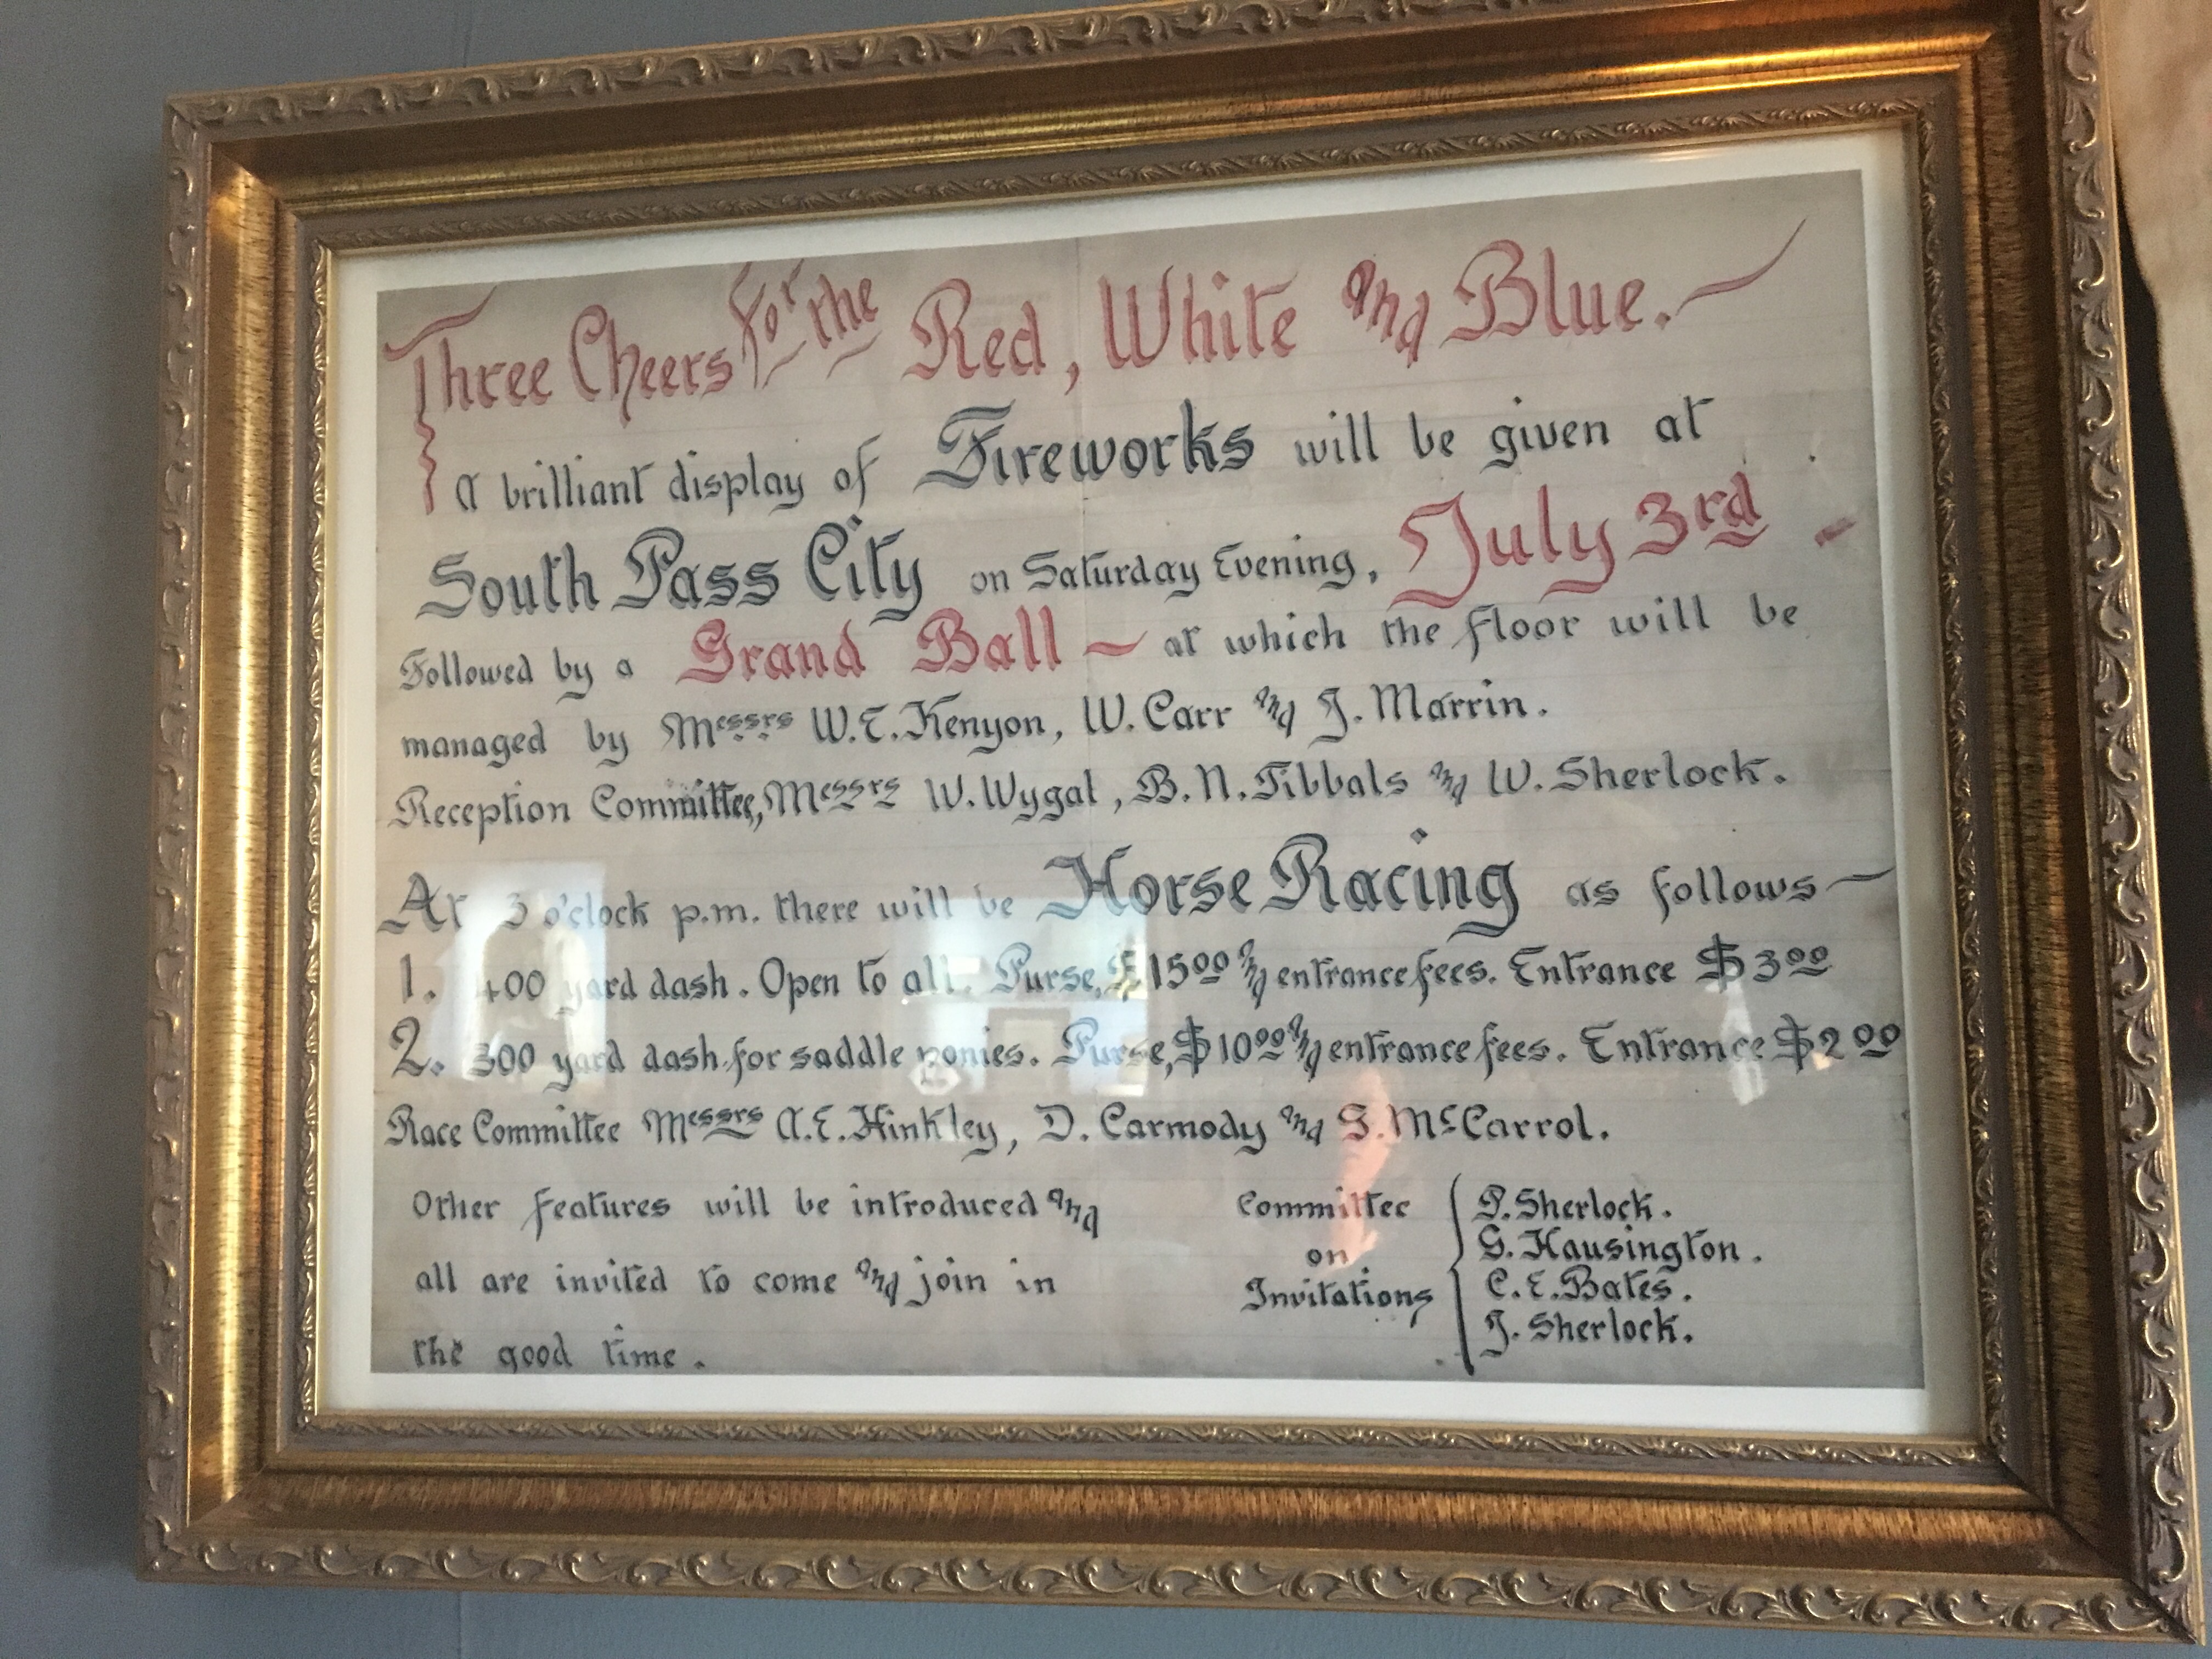 Three Cheers for the Red, White and Blue.
A brilliant display of Fireworks will be given at
South Pass City on Saturday Evening, July 3rd
Followed by a Grand Ball — at which the floor will be
managed by Messrs W.E. Kenyon, W. Carr and J. Marrin.
Reception Committee, Messrs W. Wygal, B.N. Tibbals and W. Sherlock.
At 3 o'clock p.m. there will be Horse Racing as follows —
1. 400 yard dash. Open to all. Purse, $15 00 and entrance fees. Entrance $3 00
2. 300 yard dash for saddle ponies. Purse, $10 00 and entrance fees. Entrance $2 00
Race Committee Messrs A.E. Hinkley, D. Carmody and G. McCarrol.
Other features will be introduced and
all are invited to come and join in
the good time.
Committee
on
Invitations
P. Sherlock.
G. Hausington.
C.E. Bates.
J. Sherlock.